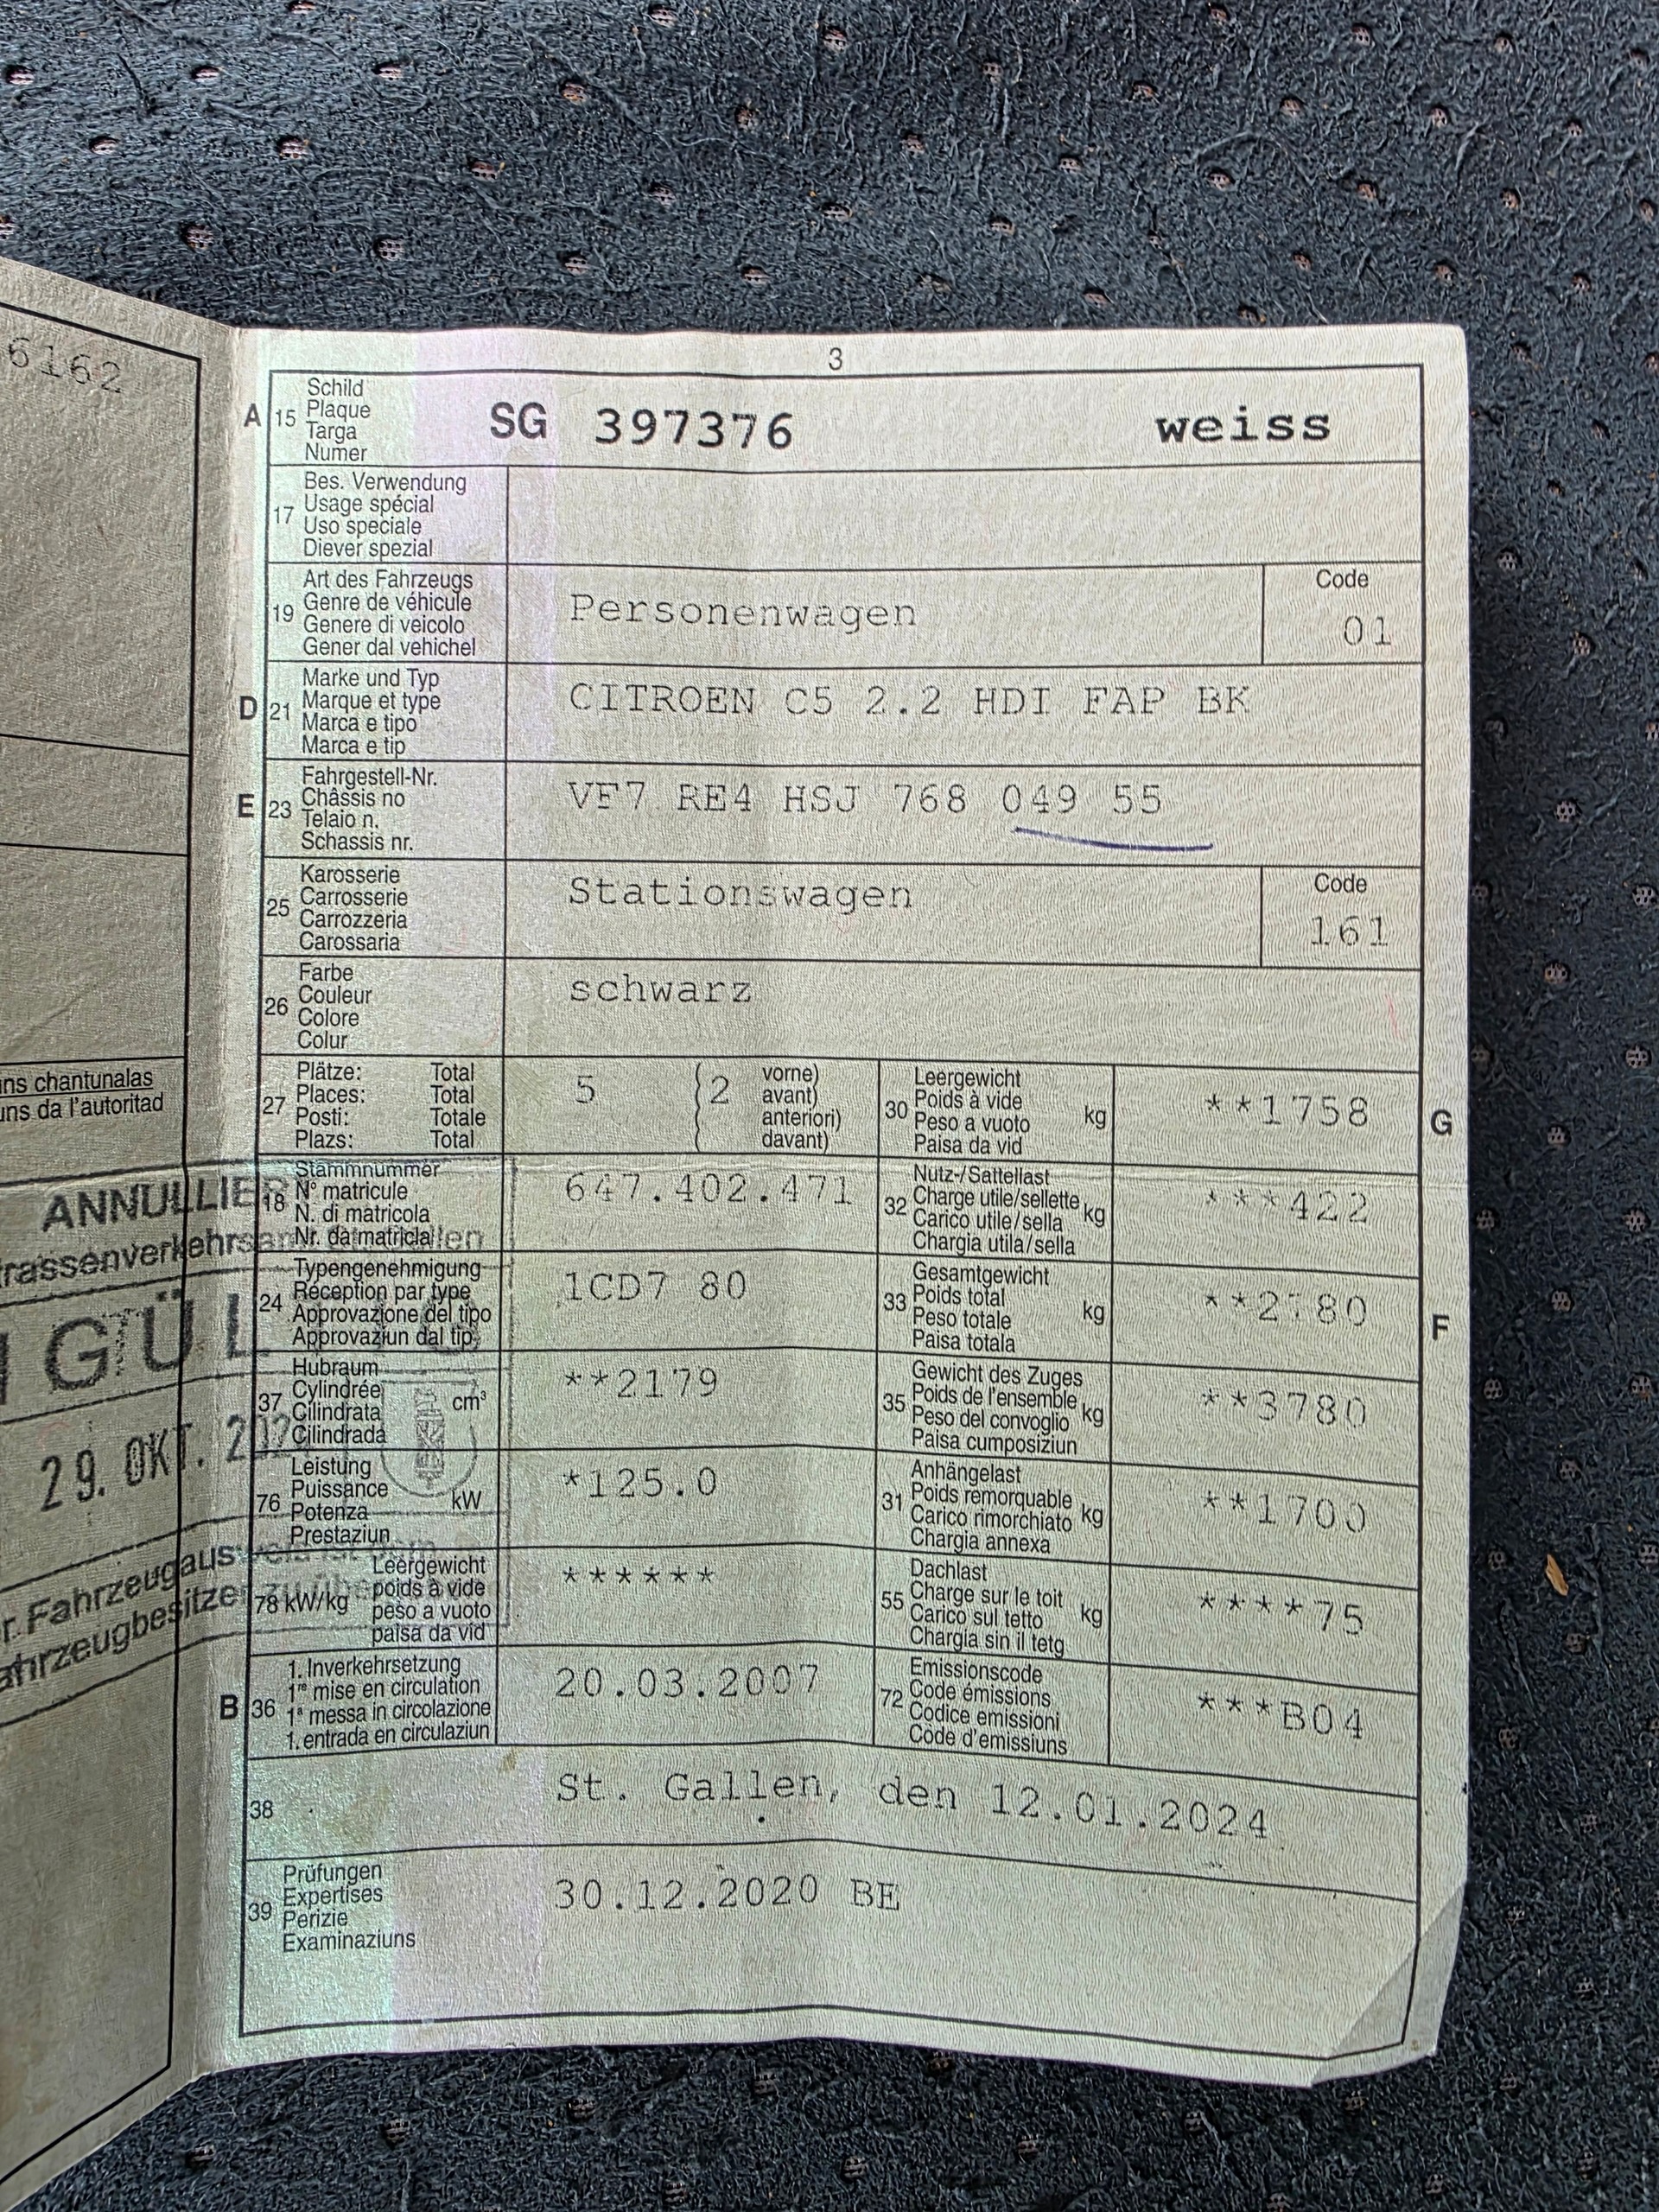 6162
ns chantunalas
uns da l'autoritad
ANNULLIE
rassenverkehrsam
GÜL
29. OKT.
r. Fahrzeugausweis ist dem
ahrzeugbesitzer zu übe
3
A 15 Schild
Plaque
Targa
Numer
SG 397376 weiss
17 Bes. Verwendung
Usage spécial
Uso speciale
Diever spezial
19 Art des Fahrzeugs
Genre de véhicule
Genere di veicolo
Gener dal vehichel
Personenwagen
Code
01
D 21 Marke und Typ
Marque et type
Marca e tipo
Marca e tip
CITROEN C5 2.2 HDI FAP BK
E 23 Fahrgestell-Nr.
Châssis no
Telaio n.
Schassis nr.
VF7 RE4 HSJ 768 049 55
25 Karosserie
Carrosserie
Carrozzeria
Carossaria
Stationswagen
Code
161
26 Farbe
Couleur
Colore
Colur
schwarz
27 Plätze: Total
Places: Total
Posti: Totale
Plazs: Total
5 (2 vorne)
avant)
anteriori)
davant)
30 Leergewicht
Poids à vide
Peso a vuoto
Paisa da vid
kg
**1758
G
18 Stammnummer
N° matricule
N. di matricola
Nr. da matricla
647.402.471
32 Nutz-/Sattellast
Charge utile/sellette
Carico utile/sella
Chargia utila/sella
kg
***422
24 Typengenehmigung
Réception par type
Approvazione del tipo
Approvaziun dal tip
1CD7 80
33 Gesamtgewicht
Poids total
Peso totale
Paisa totala
kg
**2180
F
37 Hubraum
Cylindrée
Cilindrata
Cilindrada
cm³
**2179
35 Gewicht des Zuges
Poids de l'ensemble
Peso del convoglio
Paisa cumposiziun
kg
**3780
76 Leistung
Puissance
Potenza
Prestaziun
kW
*125.0
31 Anhängelast
Poids remorquable
Carico rimorchiato
Chargia annexa
kg
**1700
78 kW/kg Leergewicht
poids à vide
peso a vuoto
paisa da vid
******
55 Dachlast
Charge sur le toit
Carico sul tetto
Chargia sin il tetg
kg
****75
B 36 1. Inverkehrsetzung
1re mise en circulation
1a messa in circolazione
1. entrada en circulaziun
20.03.2007
72 Emissionscode
Code émissions
Codice emissioni
Code d'emissiuns
***B04
38 St. Gallen, den 12.01.2024
39 Prüfungen
Expertises
Perizie
Examinaziuns
30.12.2020 BE